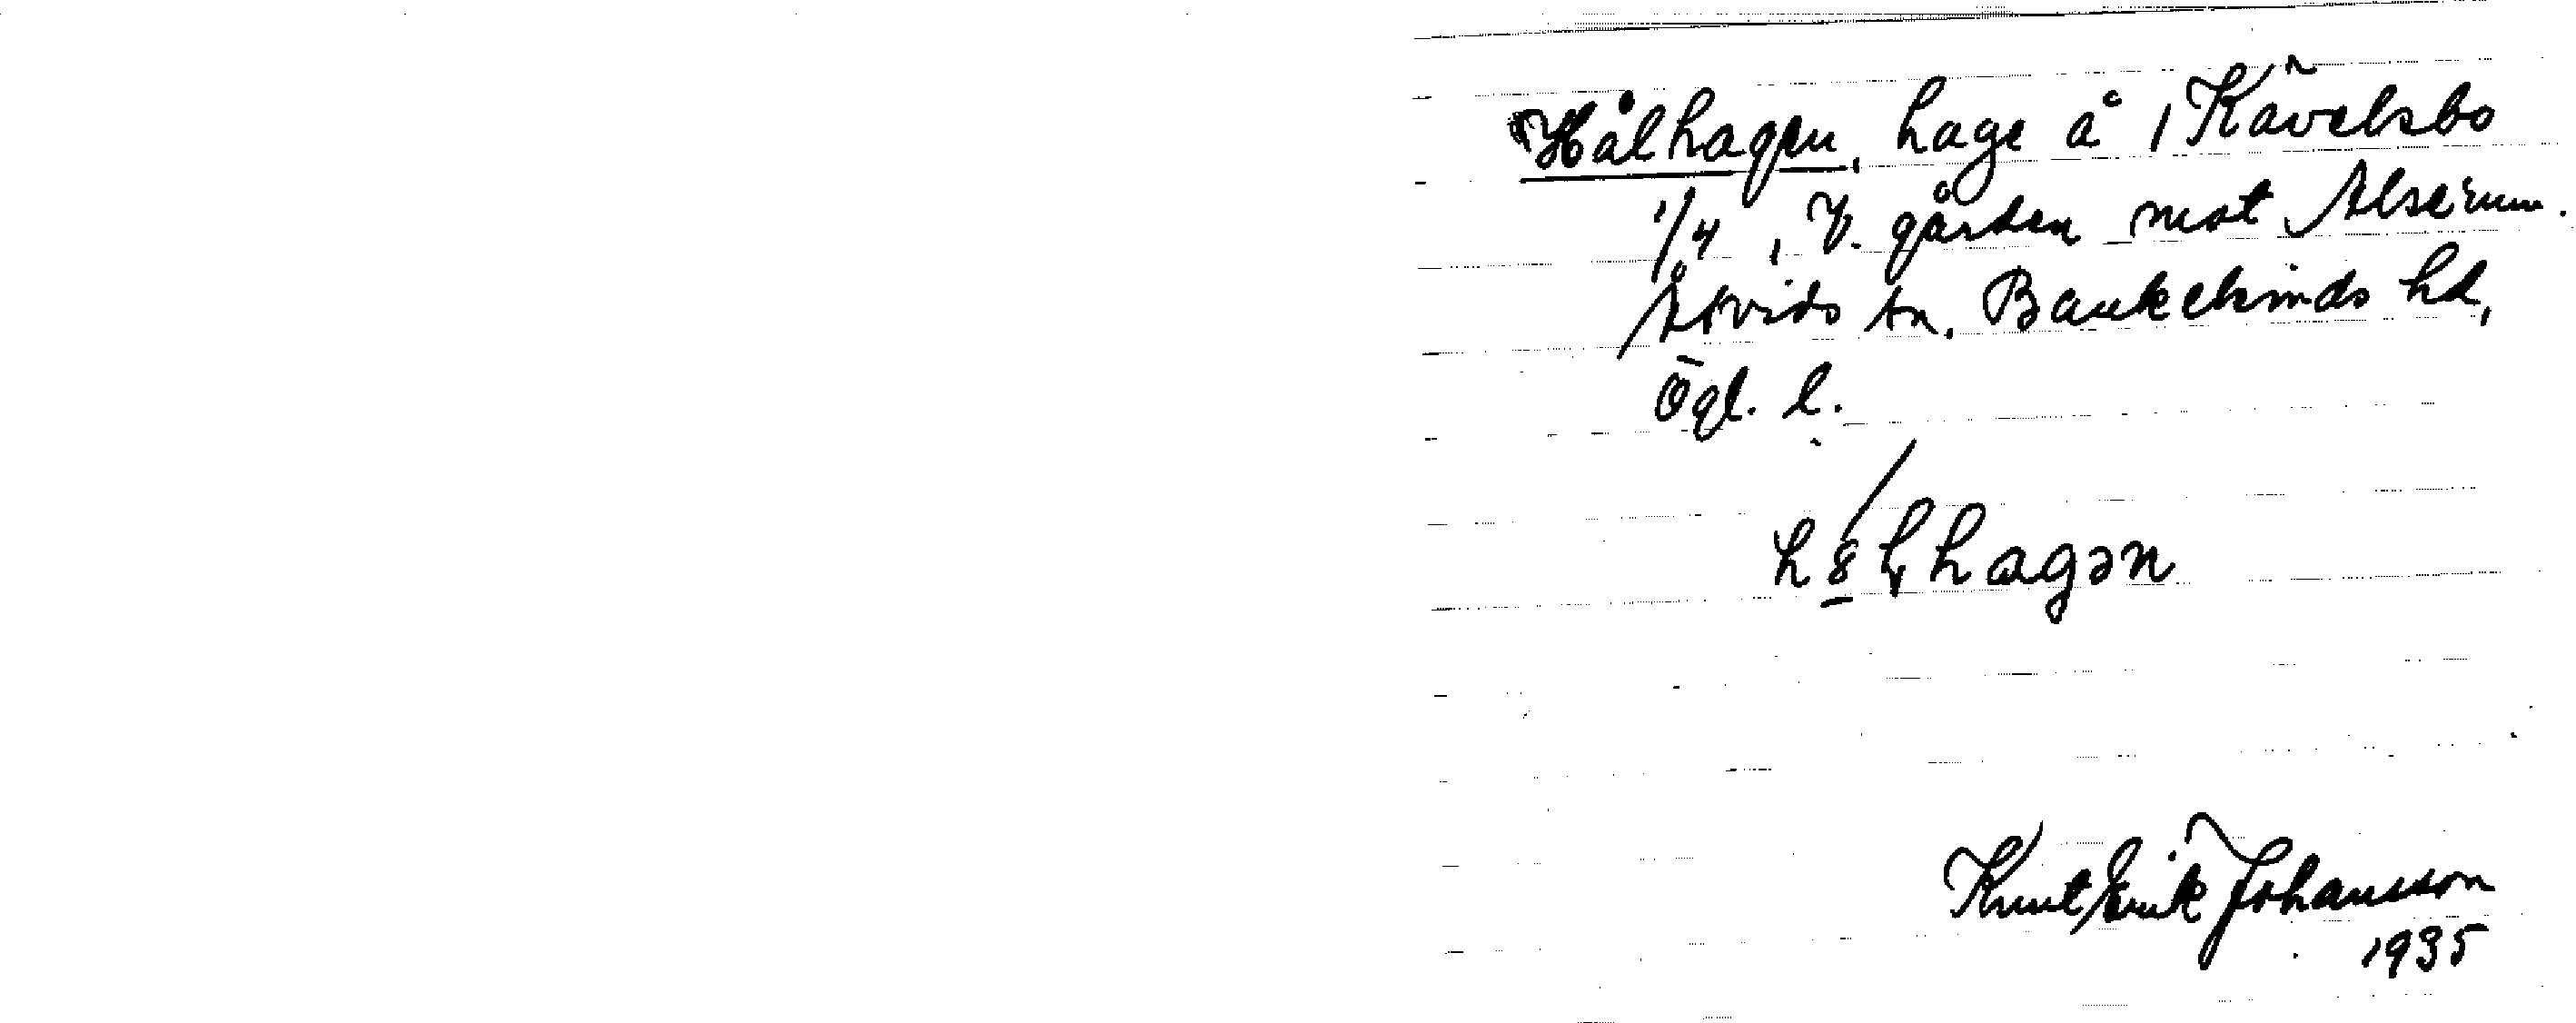 Hålhagen, hage å 1 Kävelsbo
1/4, V. gården mot Alserum.
Åtvids sn. Bankekinds hd,
Ögl. l.
hagən
Knut Erik Johansson
1935